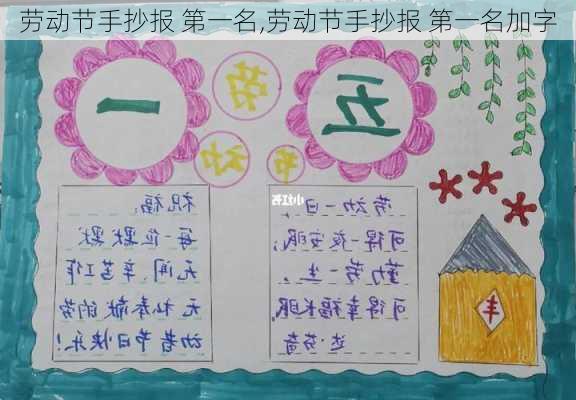 劳动节手抄报 第一名,劳动节手抄报 第一名加字
五一
劳动一日,
可得一夜安眠;
勤劳一生,
可得幸福长眠
达·芬奇
祝福:
每一位默默
无闻、辛苦工作
无私奉献的劳
动者节日快乐!
丰
小红书